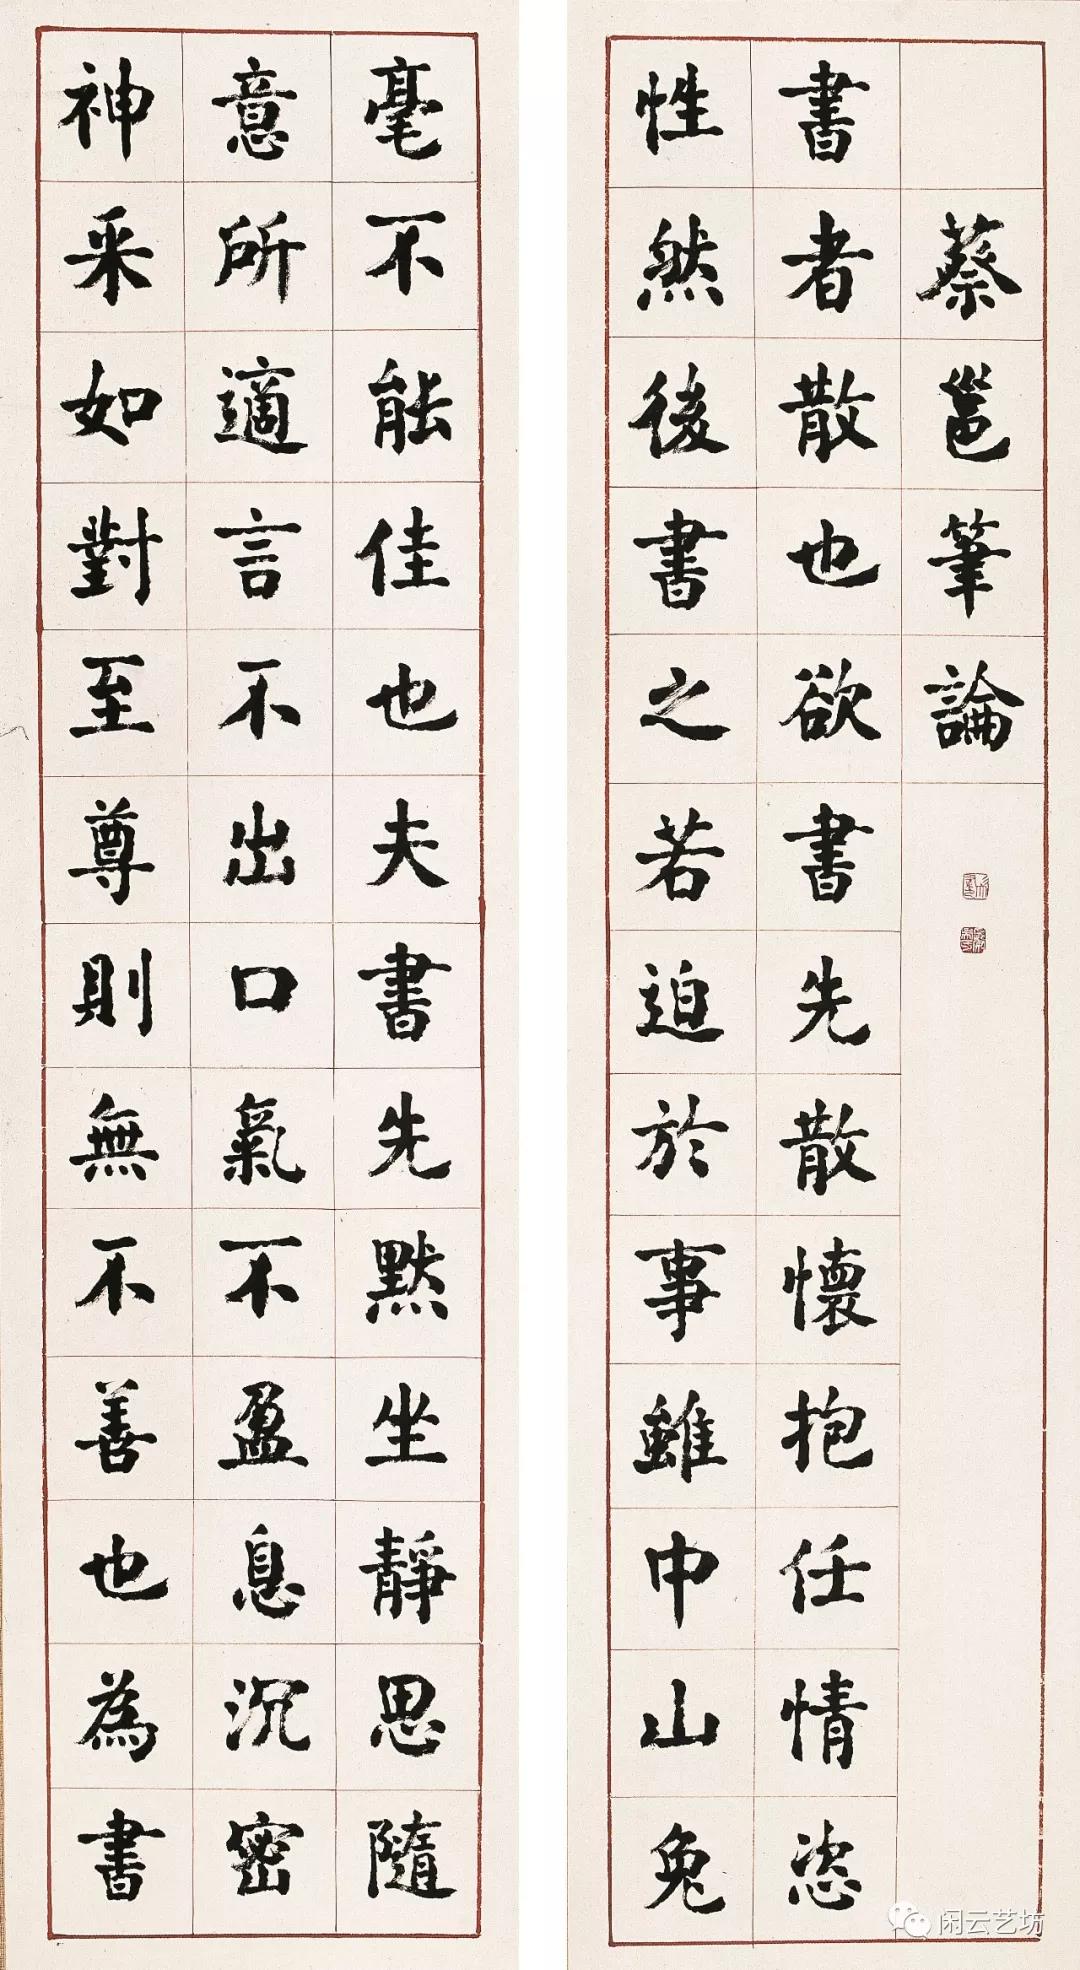 蔡邕筆論
書者散也欲書先散懷抱任情恣
性然後書之若迫於事雖中山兔
毫不能佳也夫書先默坐靜思隨
意所適言不出口氣不盈息沉密
神采如對至尊則無不善也為書
闲云艺坊